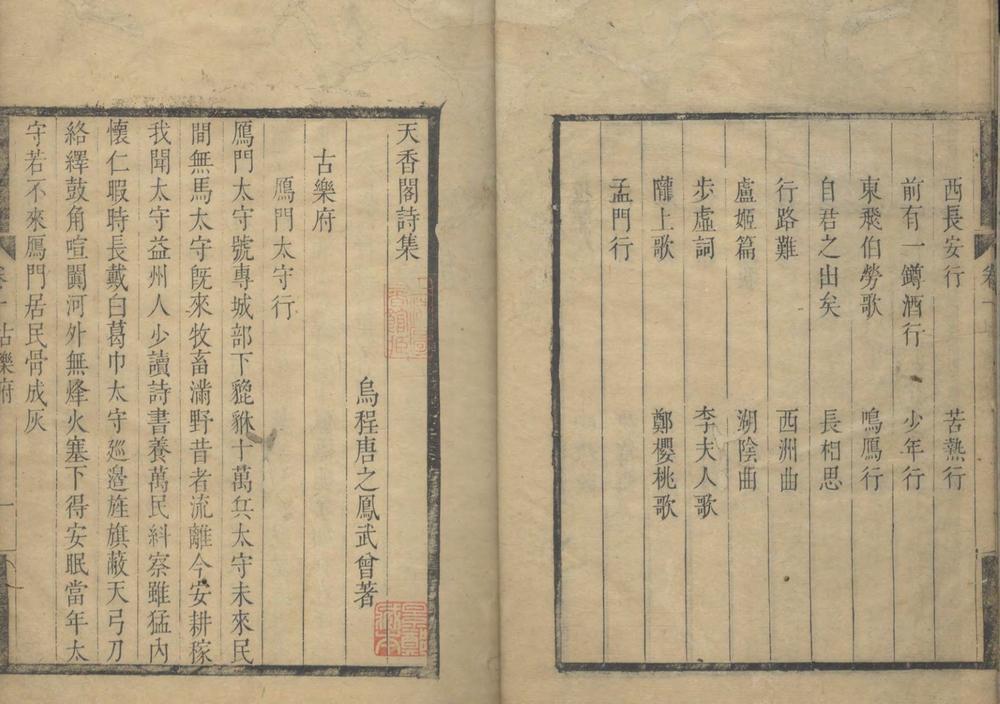 西長安行　苦熱行
前有一鐏酒行　少年行
東飛伯勞歌　鳴鴈行
自君之出矣　長相思
行路難　西洲曲
盧姬篇　湖陰曲
步虛詞　李夫人歌
隴上歌　鄭櫻桃歌
孟門行
天香閣詩集
烏程唐之鳳武曾著
古樂府
鴈門太守行
鴈門太守號專城部下貔貅十萬兵太守未來民
間無馬太守旣來牧畜滿野昔者流離今安耕稼
我聞太守益州人少讀詩書養萬民糾察雖猛內
懷仁暇時長戴白葛巾太守巡邉旌旗蔽天弓刀
絡繹鼓角喧闐河外無烽火塞下得安眠當年太
守若不來鴈門居民骨成灰
古樂府
一